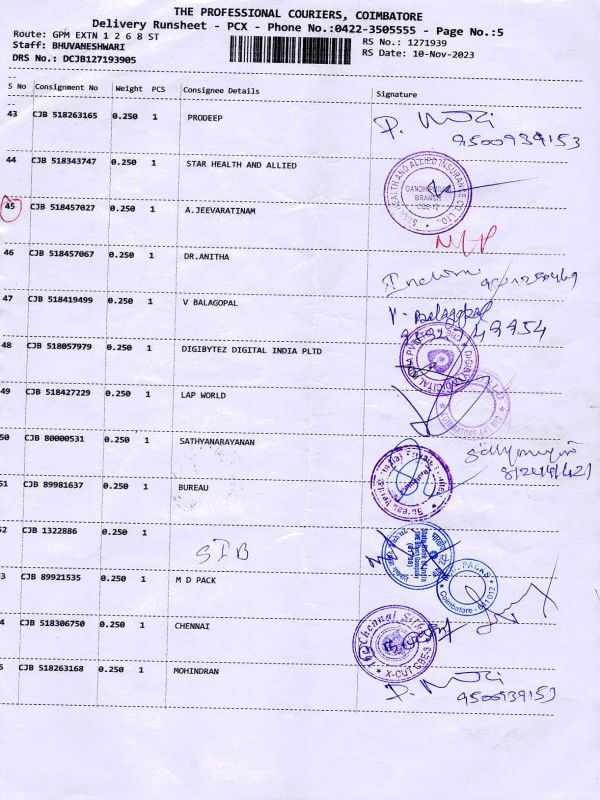 THE PROFESSIONAL COURIERS, COIMBATORE
Delivery Runsheet - PCX - Phone No.:0422-3505555 - Page No.:5
Route: GPM EXTN 1 2 6 8 ST
RS No.: 1271939
Staff: BHUVANESHWARI
RS Date: 10-Nov-2023
DRS No.: DCJB127193905
S No Consignment No Weight PCS Consignee Details Signature
43 CJB 518263165 0.250 1 PRODEEP
9500939153
44 CJB 518343747 0.250 1 STAR HEALTH AND ALLIED
GANDHIPURAM
BRANCH
45 CJB 518457027 0.250 1 A.JEEVARATINAM
46 CJB 518457067 0.250 1 DR.ANITHA
47 CJB 518419499 0.250 1 V BALAGOPAL
V. Balagopal
48 CJB 518057979 0.250 1 DIGIBYTEZ DIGITAL INDIA PLTD
49 CJB 518427229 0.250 1 LAP WORLD
50 CJB 80000531 0.250 1 SATHYANARAYANAN
51 CJB 89981637 0.250 1 BUREAU
52 CJB 1322886 0.250 1
SIB
3 CJB 89921535 0.250 1 M D PACK
Coimbatore - 641012
4 CJB 518306750 0.250 1 CHENNAI
The Chennai Silks
X-CUT CBE-3
5 CJB 518263168 0.250 1 MOHINDRAN
9500939153